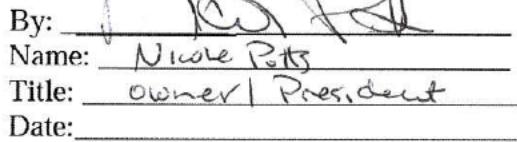 By:
Name: Nicole Potts
Title: owner / President
Date: